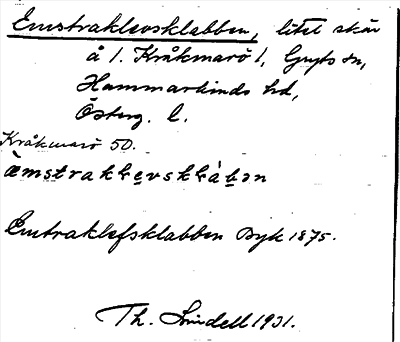 Emstraklevsklabben, litet skär
å 1. Kråkmarö 1, Gryts sn,
Hammarkinds hd,
Österg. l.
Kråkmarö 50.
Emtraklefsklabben Byk 1875.
Th. Lindell 1931.